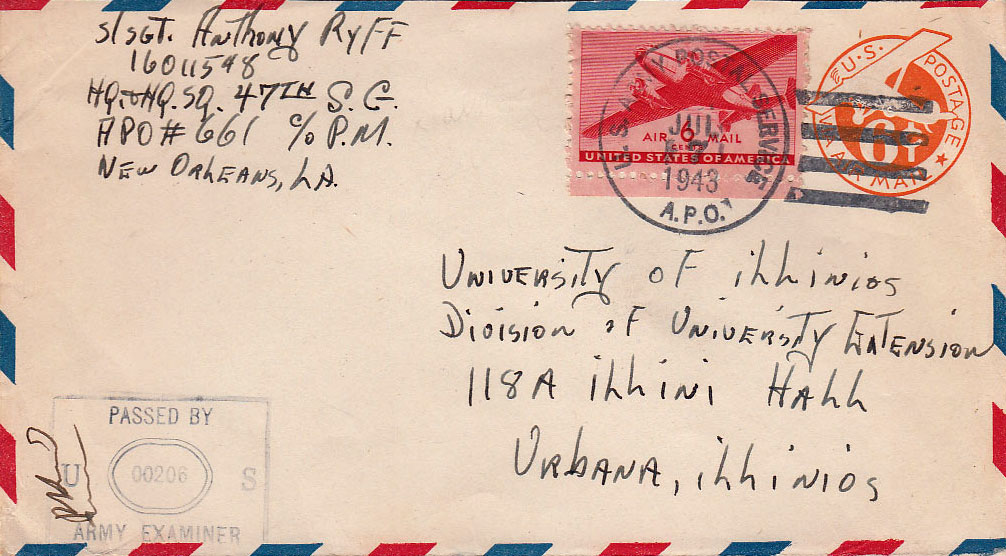 S/SGT. Anthony Ryff
16011548
HQ. & HQ. SQ. 47TH S.G.
APO # 661 c/o P.M.
New Orleans, LA.
AIR 6 MAIL
CENTS
UNITED STATES OF AMERICA
U.S. ARMY POSTAL SERVICE
JUL
1943
A.P.O.
U.S. POSTAGE
6¢
AIR MAIL
University of illinios
Division of University Extension
118A illini Hall
Urbana, illinios
PASSED BY
U 00206 S
ARMY EXAMINER